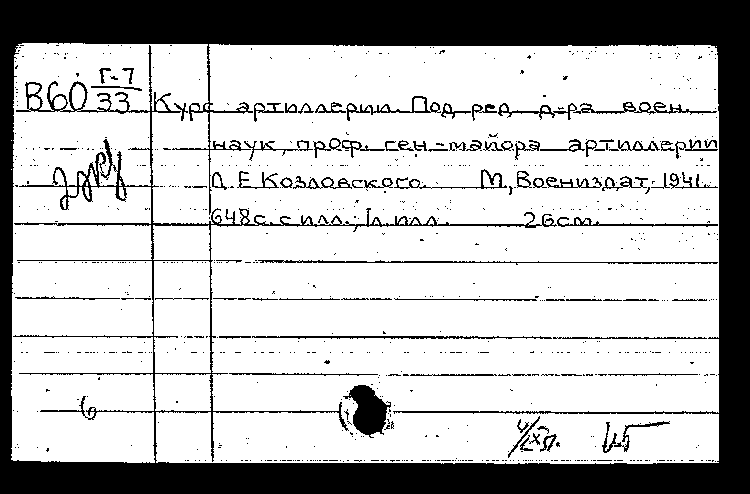 В60 Г-7/33 Курс артиллерии. Под ред. д-ра воен.
наук, проф. ген.-майора артиллерии
Д. Е. Козловского. М., Воениздат, 1941.
648с. с илл.; 1л. илл. 26см.
2 экз
6